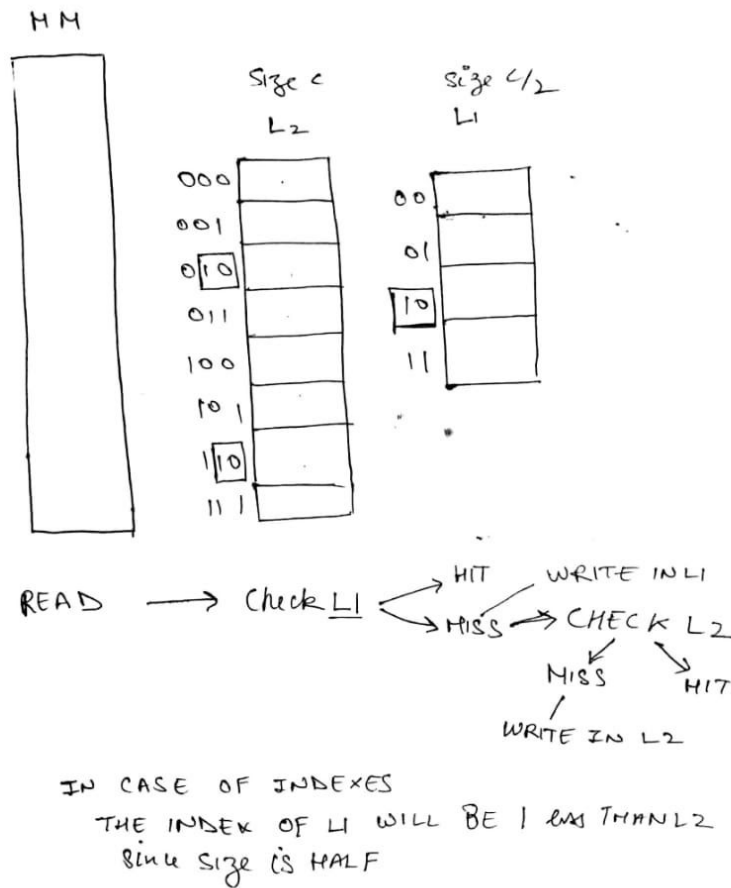 MM
Size c
L2
size c/2
L1
000
001
010
011
100
101
110
111
00
01
10
11
READ → Check L1
HIT
MISS
WRITE IN L1
CHECK L2
MISS
HIT
WRITE IN L2
IN CASE OF INDEXES
THE INDEX OF L1 WILL BE 1 less THAN L2
since size is HALF